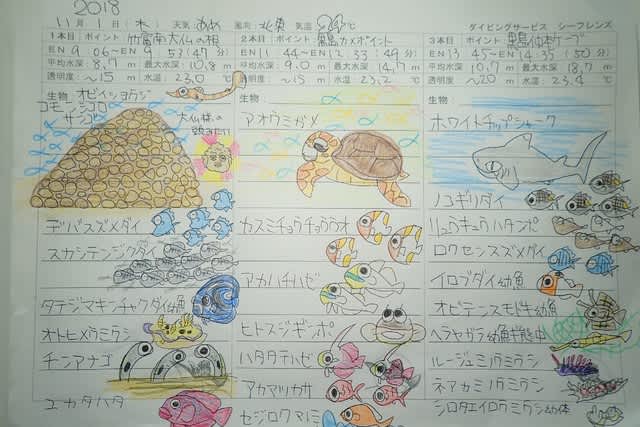 2018
11月1日(木) 天気 あめ 風向 北東 気温 24℃ ダイビングサービス シーフレンズ
1本目 ポイント 竹富南大仏の祖
EN 9 06〜EN 9 53 (47分)
平均水深 8.7m 最大水深 10.8m
透明度 〜15m 水温 23.0℃
生物 オビイシヨウジ
コモンシコロサンゴ
大仏様の頭みたい
デバスズメダイ
スカシテンジクダイ
タテジマキンチャクダイ幼魚
オトヒメウミウシ
チンアナゴ
ユカタハタ
2本目 ポイント 黒島カメポイント
EN 11 44〜EN 12 33 (49分)
平均水深 9.0m 最大水深 14.7m
透明度 〜15m 水温 23.2℃
生物
アオウミガメ
カスミチョウチョウウオ
アカハチハゼ
ヒトスジギンポ
ハタタテハゼ
アカマツカサ
セジロクマノミ
3本目 ポイント 黒島仲本ケーブ
EN 13 45〜EN 14 35 (50分)
平均水深 10.7m 最大水深 18.7m
透明度 〜20m 水温 23.4℃
生物
ホワイトチップシャーク
ノコギリダイ
リュウキュウハタンポ
ロクセンスズメダイ
イロブダイ幼魚
オビテンスモドキ幼魚
ヘラヤガラ幼魚擬態中
ルージュミノウミウシ
ネアカミノウミウシ
シロタエイロウミウシ幼体